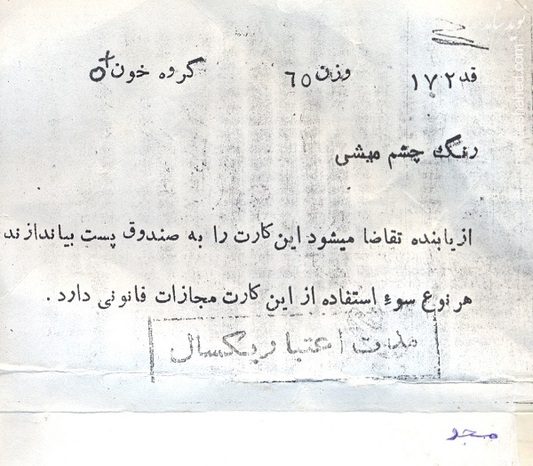 قد ۱۷۲ وزن ٦٥ گروه خون O+
رنگ چشم میشی
از یابنده تقاضا میشود این کارت را به صندوق پست بیاندازند
هر نوع سوء استفاده از این کارت مجازات قانونی دارد .
مدت اعتبار یکسال